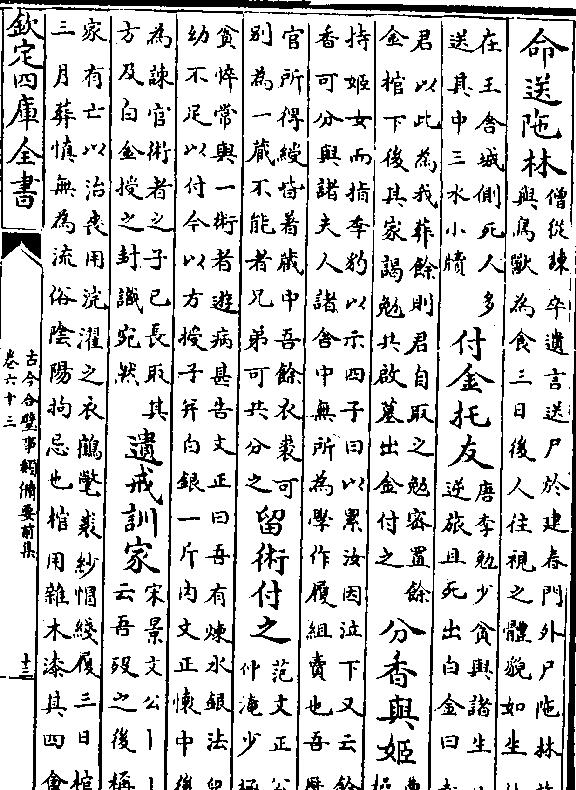 命送陁林
僧從諫卒遺言送尸於建春門外尸陁林
與鳥獸為食三日後人往視之體貌如生
在王舍城側死人多
送其中三水小牘
付金托友
唐李勉少貧與諸生
逆旅且死出白金曰
君以此為我葬餘則君自取之勉密置餘
金棺下後其家謁勉共啟墓出金付之
分香與姬
持姬女而指季豹以示四子曰以累汝因泣下又云餘
香可分與諸夫人諸舍中無所為學作履組賣也吾
官所得綬皆著藏中吾餘衣裘可
別為一藏不能者兄弟可共分之
留術付之
范文正公
仲淹少
貧悴常與一術者遊病甚告文正曰吾有煉水銀法兒
幼不足以付今以方授子并白銀一斤内文正懷中後
為諫官術者之子已長取其
方及白金授之封識宛然
遺戒訓家
宋景文公
云吾歿之後稱
家有亡以治喪用浣濯之衣鶴氅裘紗帽綫履三日棺
三月葬慎無為流俗陰陽拘忌也棺用雜木漆其四會
欽定四庫全書
古今合璧事類備要前集
卷六十三
十三